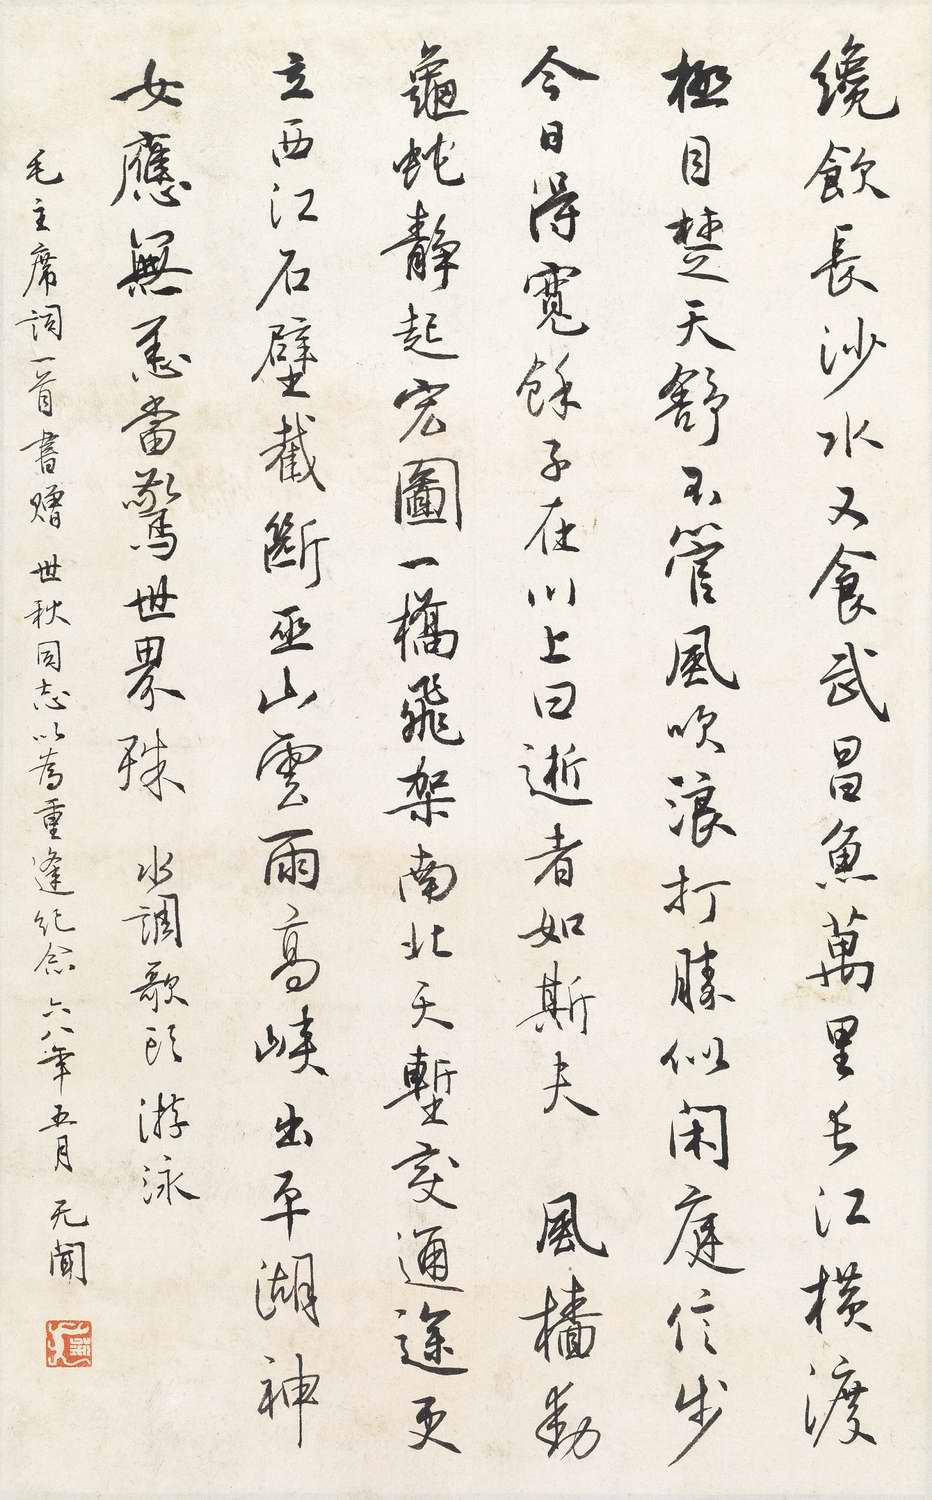 纔飲長沙水又食武昌魚萬里長江橫渡
極目楚天舒不管風吹浪打勝似閑庭信步
今日得寬餘子在川上曰逝者如斯夫 風檣動
龜蛇靜起宏圖一橋飛架南北天塹變通途更
立西江石壁截斷巫山雲雨高峽出平湖神
女應無恙當驚世界殊 水調歌頭 游泳
毛主席詞一首書贈 世秋同志以為重逢紀念 六八年五月 无聞